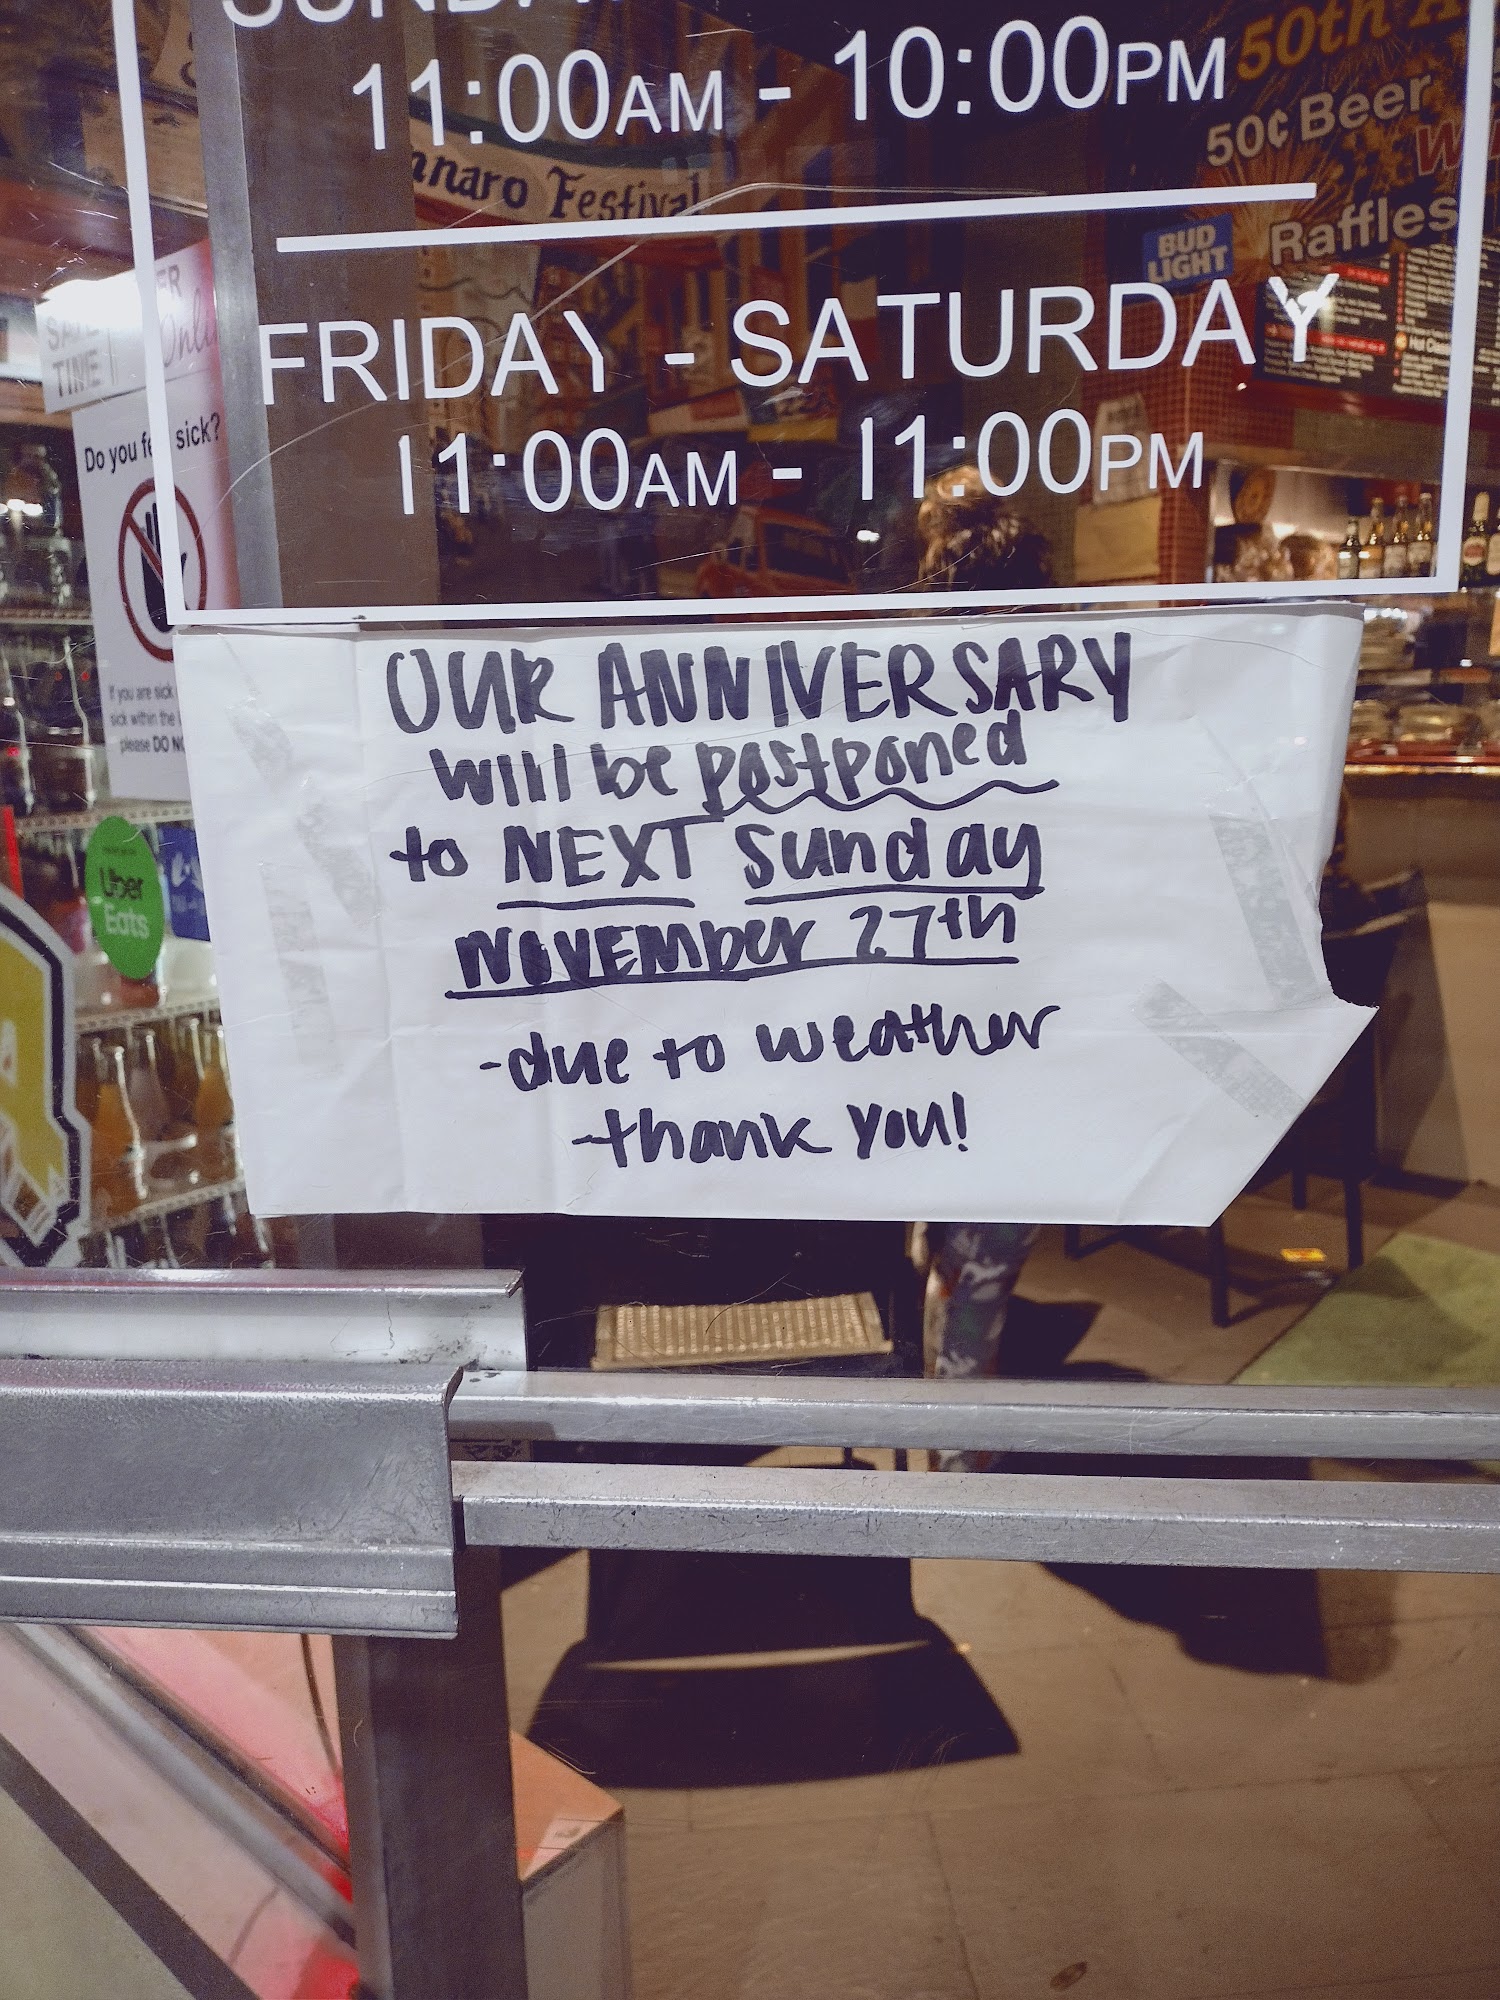 11:00AM - 10:00PM
FRIDAY - SATURDAY
11:00AM - 11:00PM
50th
50¢ Beer
Raffles
BUD
LIGHT
Festival
Do you sick?
If you are sick
sick within the
please DO
Uber
Eats
OUR ANNIVERSARY
will be postponed
to NEXT Sunday
NOVEMBER 27th
-due to weather
-thank you!